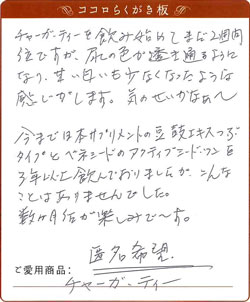 ココロらくがき板
チャーガーティーを飲み始めてまだ2週間
位ですが、尿の色が透き通るように
なり、甘い匂いも少なくなったような
感じがします。気のせいかなぁ〜
今までは本サプリメントの豆鼓エキスつぶ
タイプとベネシードのアクティブシード・ワンを
3年以上飲んでおりましたが、こんな
ことはありませんでした。
数ヶ月後が楽しみで〜す。
匿名希望
ご愛用商品:
チャーガーティー